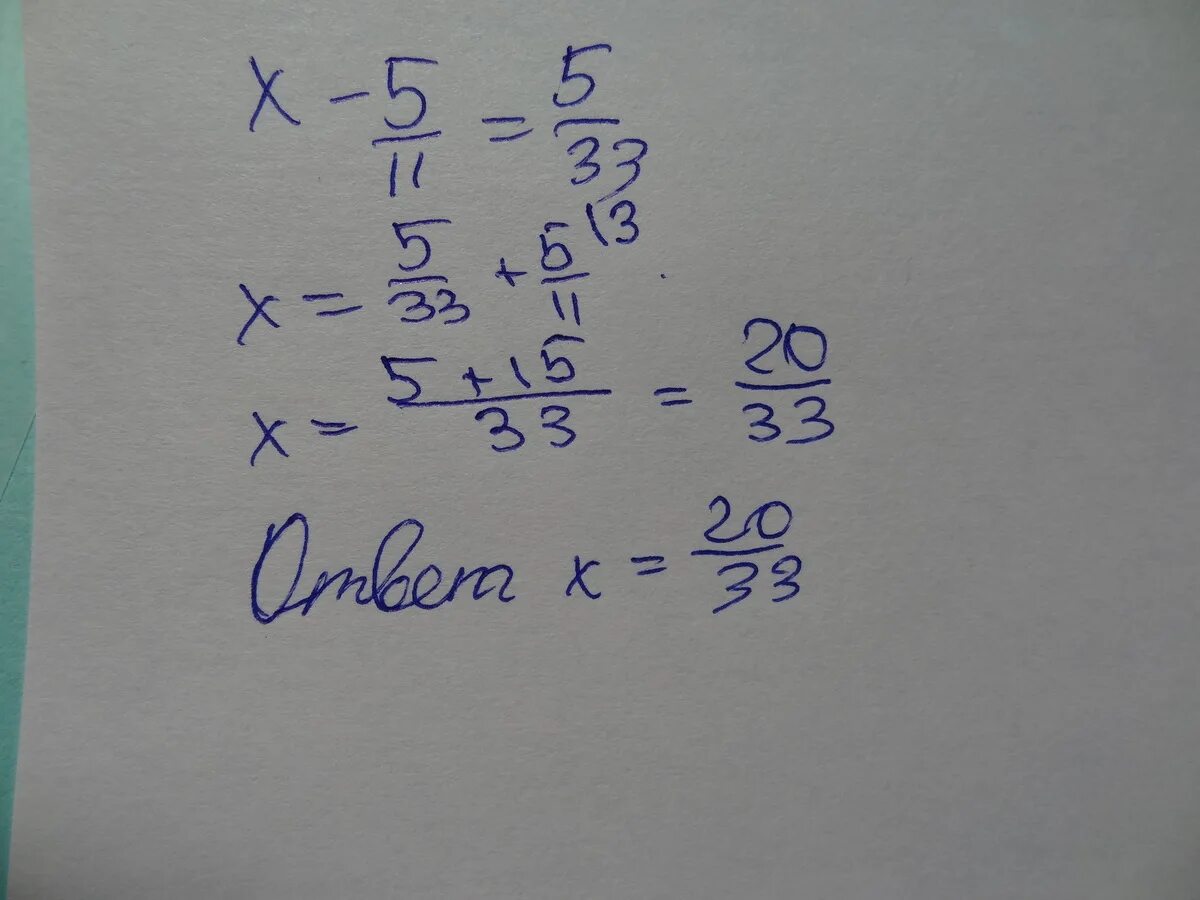 x - 5/11 = 5/33
x = 5/33 + 5/11 \3
x = 5+15/33 = 20/33
Ответ x = 20/33